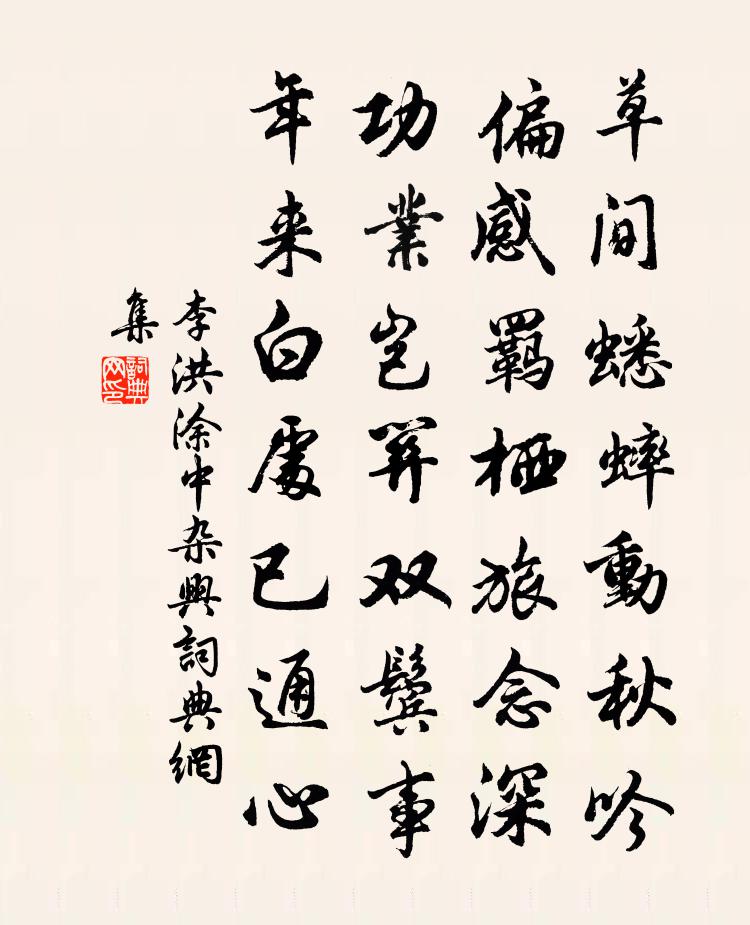 草间蟋蟀動秋吟
偏感羈栖旅念深
功業岂關双鬓事
年来白處已通心
李洪涂中杂興詞典網
集
詞典网印